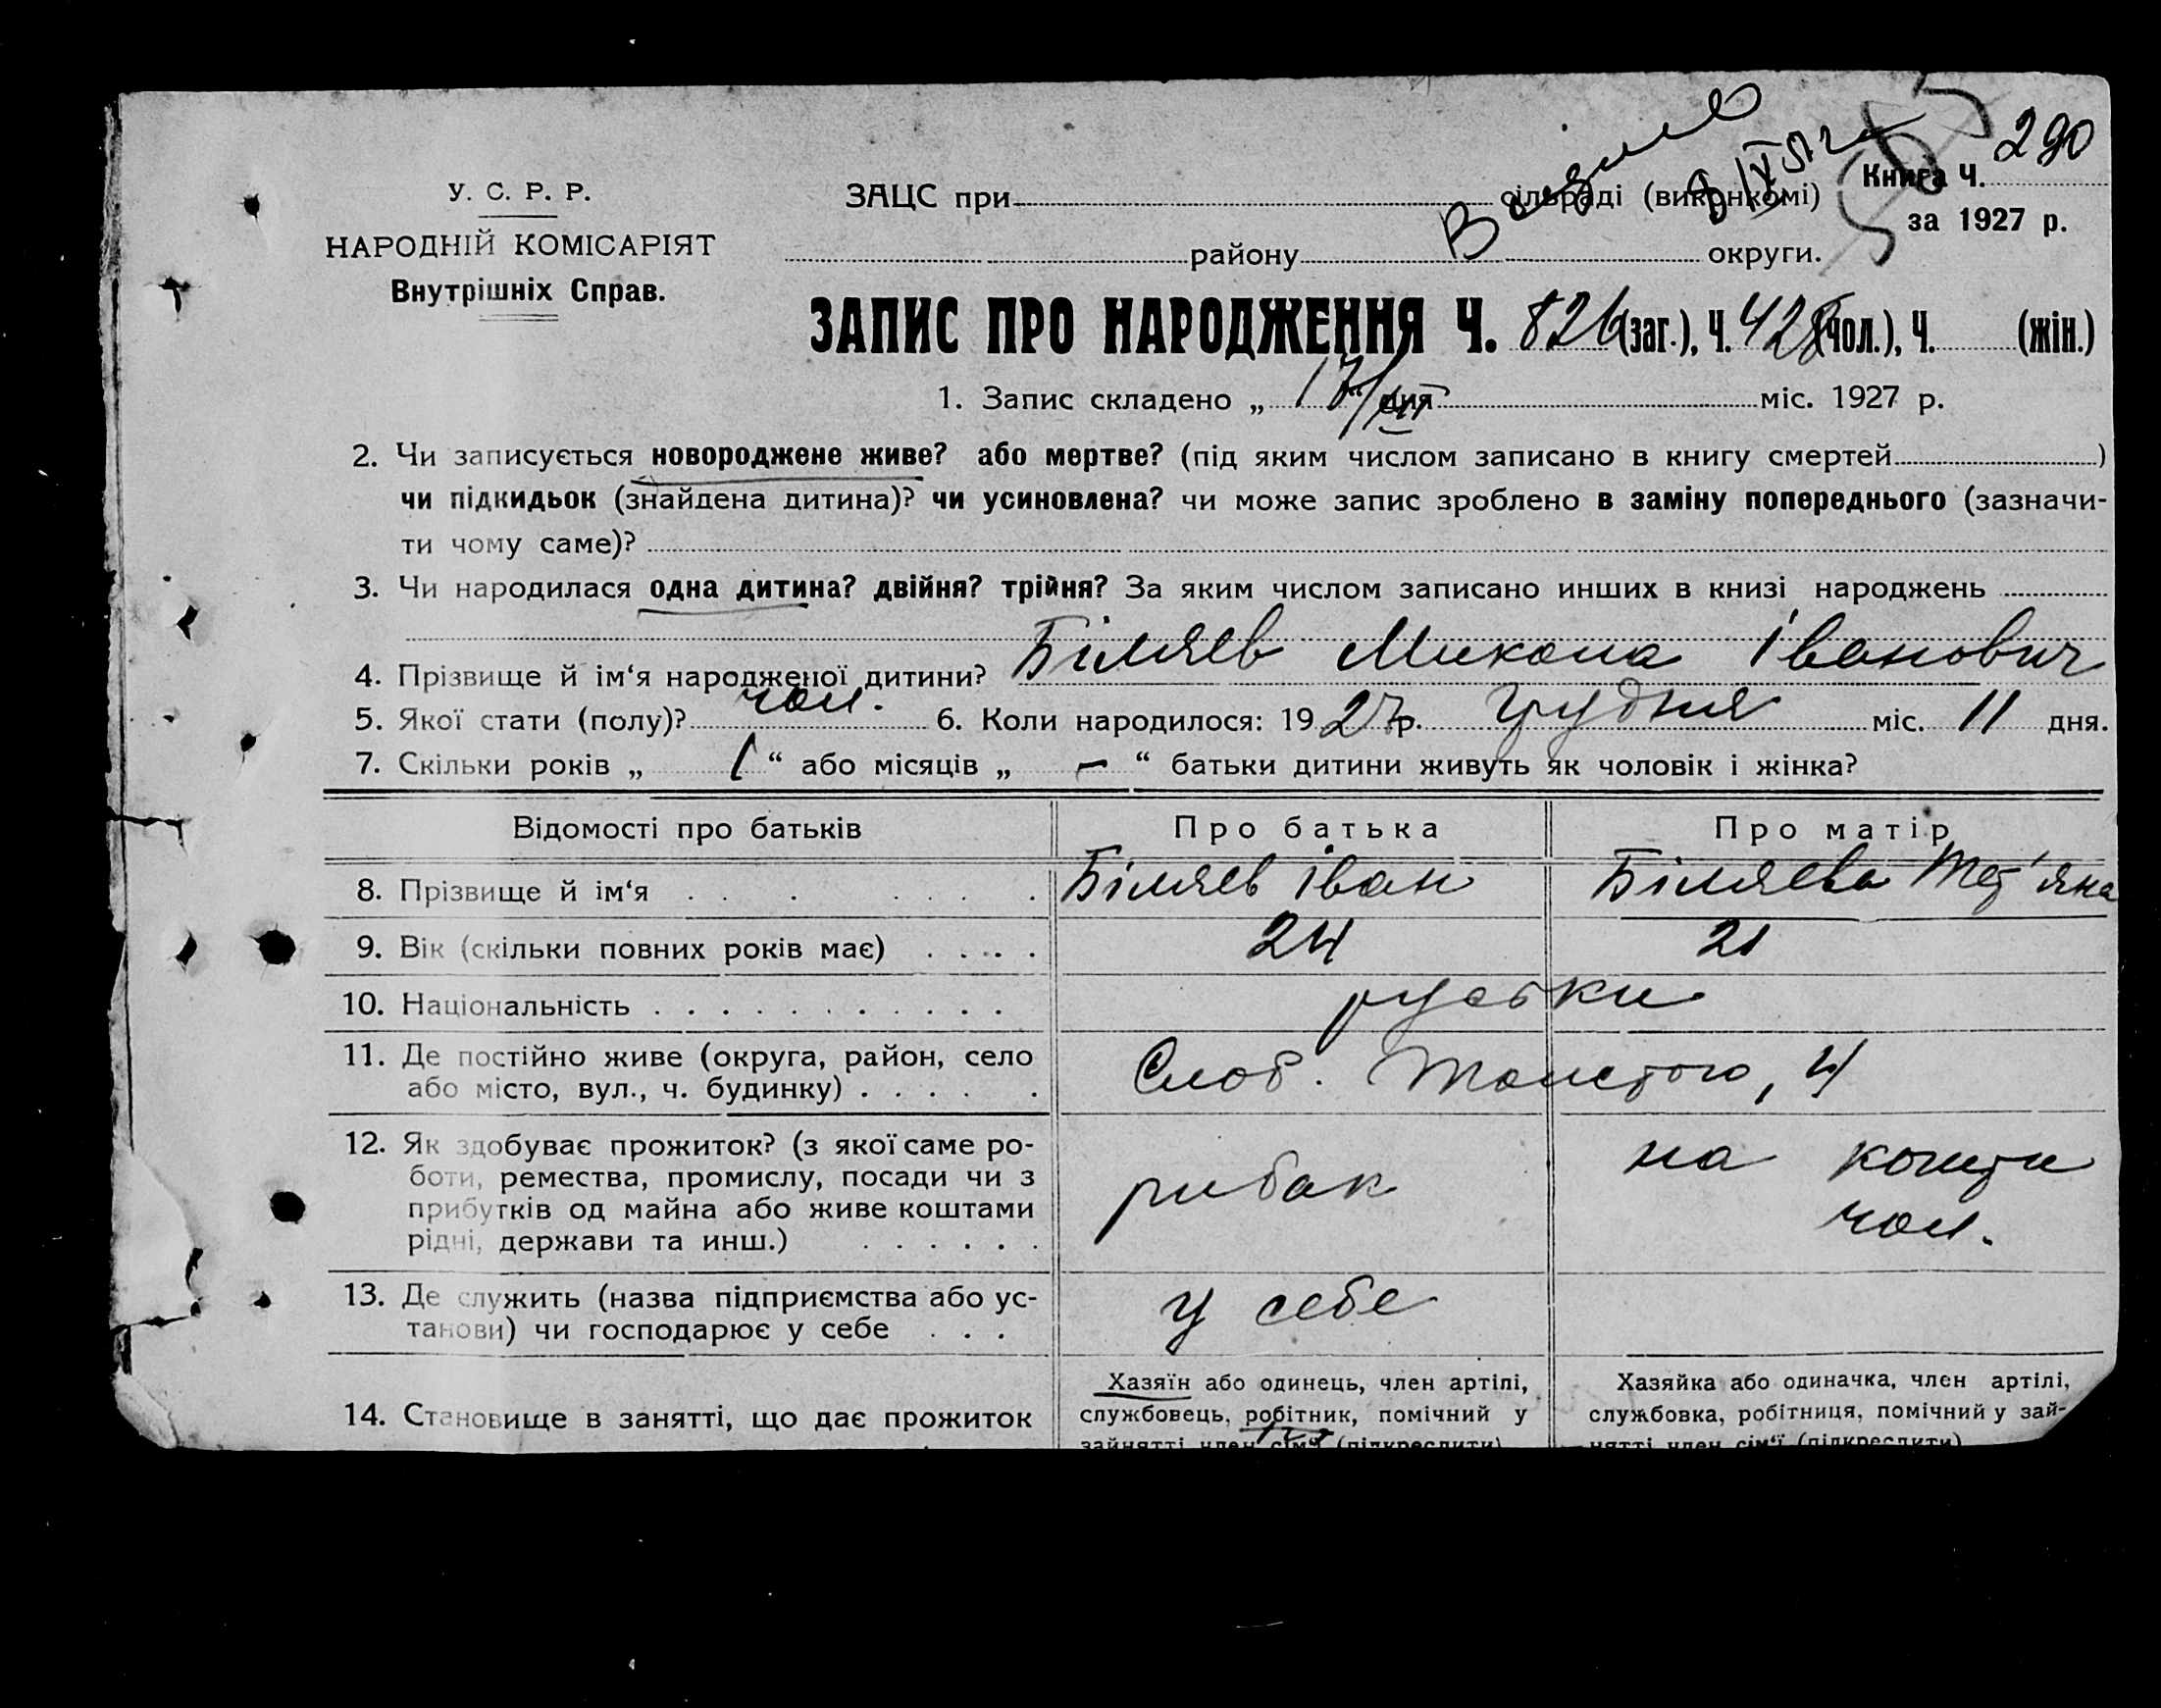 290
У. С. Р. Р.
НАРОДНІЙ КОМІСАРІЯТ
Внутрішніх Справ.
ЗАЦС при сільраді (виконкомі)
району округи.
Книга Ч.
за 1927 р.
ЗАПИС ПРО НАРОДЖЕННЯ Ч. 826 (заг.), Ч. 428 (чол.), Ч. (жін.)
1. Запис складено „ 17/XII “ дня міс. 1927 р.
2. Чи записується новороджене живе? або мертве? (під яким числом записано в книгу смертей )
чи підкидьок (знайдена дитина)? чи усиновлена? чи може запис зроблено в заміну попереднього (зазначи-
ти чому саме)?
3. Чи народилася одна дитина? двійня? трійня? За яким числом записано инших в книзі народжень
4. Прізвище й ім‘я народженої дитини? Біляєв Микола Іванович
5. Якої стати (полу)? чол. 6. Коли народилося: 1927 р. грудня міс. 11 дня.
7. Скільки років „ 1 “ або місяців „ — “ батьки дитини живуть як чоловік і жінка?
Відомості про батьків Про батька Про матір
8. Прізвище й ім‘я . . . . . . . Біляєв Іван Біляєва Тет'яна
9. Вік (скільки повних років має) . . . . . 24 21
10. Національність . . . . . . . . . . . руськи
11. Де постійно живе (округа, район, село
або місто, вул., ч. будинку) . . . . . Слоб. Толстого, 4
12. Як здобуває прожиток? (з якої саме ро-
боти, ремества, промислу, посади чи з
прибутків од майна або живе коштами
рідні, держави та инш.) . . . . . .
рибак
на кошти
чол.
13. Де служить (назва підприємства або ус-
танови) чи господарює у себе . . .
у себе
14. Становище в занятті, що дає прожиток
Хазяїн або одинець, член артілі,
службовець, робітник, помічний у
зайнятті член сім‘ї (підкреслити)
Хазяйка або одиначка, член артілі,
службовка, робітниця, помічний у зай-
нятті член сім‘ї (підкреслити)